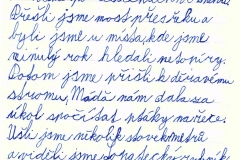 Přešli jsme most přes řeku a
byli jsme u místa, kde jsme
minulý rok hledali netopíry.
Potom jsme přišli k děravému
stromu. Máďa nám dala za
úkol spočítat ptáky na řece.
Ušli jsme několik stovek metrů
a viděli jsme